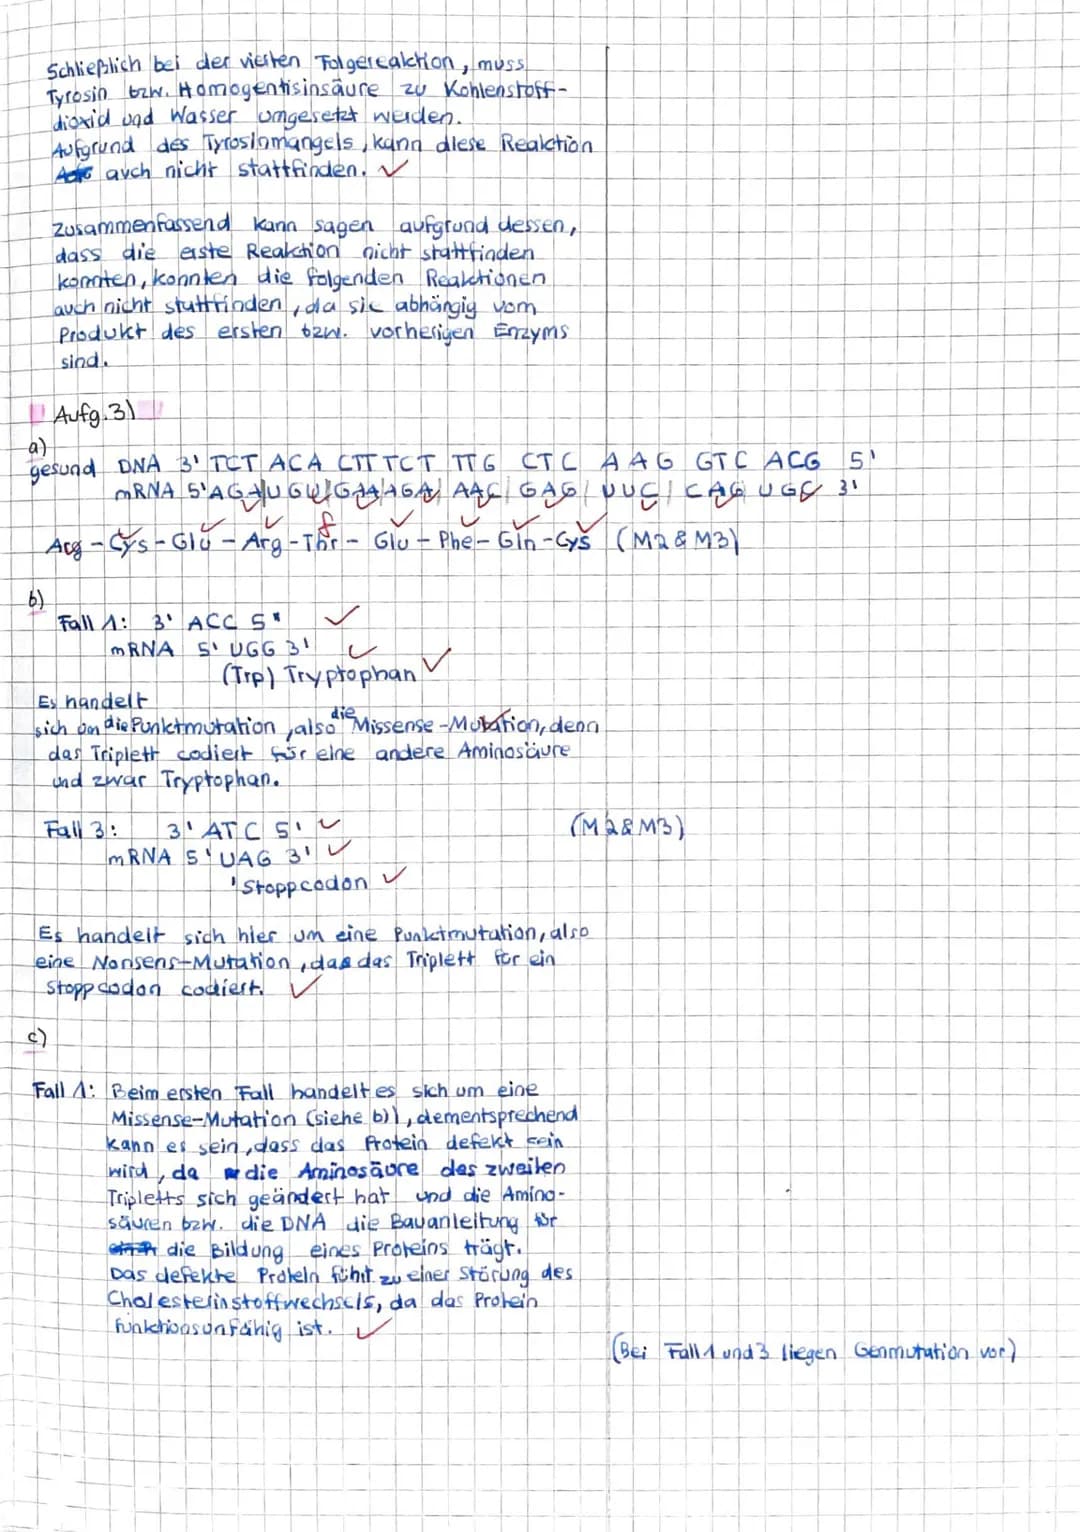 Schließlich bei der vierten Folgereaktion, muss
Tyrosin bzw. Homogentisinsäure zu Kohlenstoff-
dioxid und Wasser umgesetzt werden.
Aufgrund des Tyrosinmangels, kann diese Reaktion
auch nicht stattfinden. ✓
Zusammenfassend kann sagen aufgrund dessen,
dass die erste Reaktion nicht stattfinden
konnten, konnten die folgenden Reaktionen
auch nicht stattfinden, da sie abhängig vom
Produkt des ersten bzw. vorherigen Enzyms
sind.
Aufg. 3)
a)
gesund DNA 3' TCT ACA CTT TCT TTG CTC AAG GTC ACG 5'
mRNA 5' AGA|UGU|GAA|AGA| AAC| GAG| UUC| CAG UGC 3'
Arg - Cys - Glu - Arg - Thr - Glu - Phe - Gln - Cys (M2 & M3)
f
b)
Fall 1: 3' ACC 5" ✓
mRNA 5' UGG 3' ✓
(Trp) Tryptophan ✓
Es handelt
sich um die Punktmutation, also die Missense-Mutation, denn
das Triplett codiert für eine andere Aminosäure
und zwar Tryptophan.
Fall 3: 3' ATC 5' ✓ (M2 & M3)
mRNA 5' UAG 3' ✓
'Stoppcodon ✓
Es handelt sich hier um eine Punktmutation, also
eine Nonsens-Mutation, das das Triplett für ein
Stoppcodon codiert. ✓
c)
Fall 1: Beim ersten Fall handelt es sich um eine
Missense-Mutation (siehe b)), dementsprechend
kann es sein, dass das Protein defekt sein
wird, da die Aminosäure des zweiten
Tripletts sich geändert hat und die Amino-
säuren bzw. die DNA die Bauanleitung für
die Bildung eines Proteins trägt.
Das defekte Protein führt zu einer Störung des
Cholesterinstoffwechsels, da das Protein
funktionsunfähig ist. ✓
(Bei Fall 1 und 3 liegen Genmutation vor)